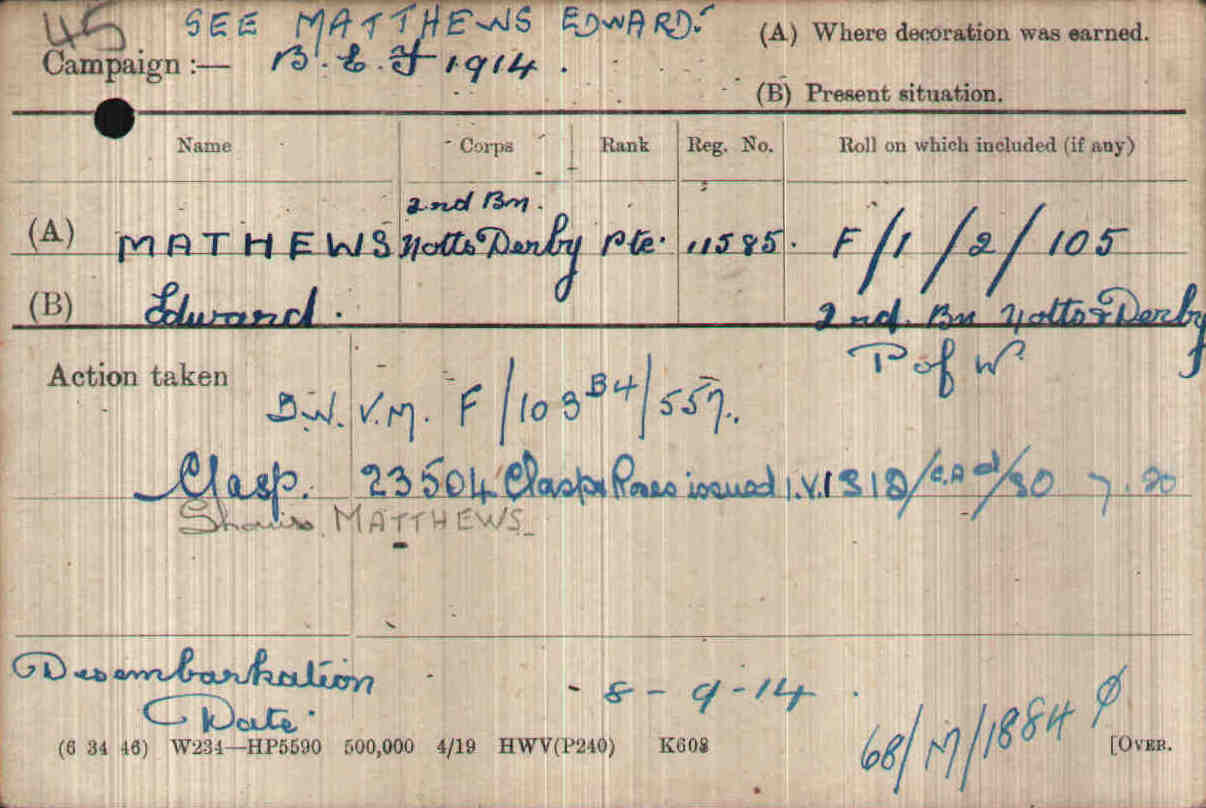 45 SEE MATTHEWS EDWARD.
Campaign :— B.E.F 1914.
(A) Where decoration was earned.
(B) Present situation.
Name Corps Rank Reg. No. Roll on which included (if any)
2nd Bn.
(A) MATHEWS Notts Derby Pte. 11585. F/1/2/105
(B) Edward. 2nd. Bn Notts & Derby
P of W
Action taken
B.W. V.M. F/103 B4/557.
Clasp. 23504 Clasp & Roses issued I.V. 1318/ /80 7.20
MATTHEWS
Desembarkation
Date. - 8 - 9 - 14.
68/M/1884
(6 34 46) W234—HP5590 500,000 4/19 HWV(P240) K608 [OVER.